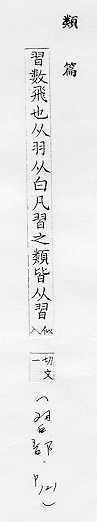 類篇
習數飛也从羽从白凡習之類皆从習
似入
切
文一
(習部.P/121)